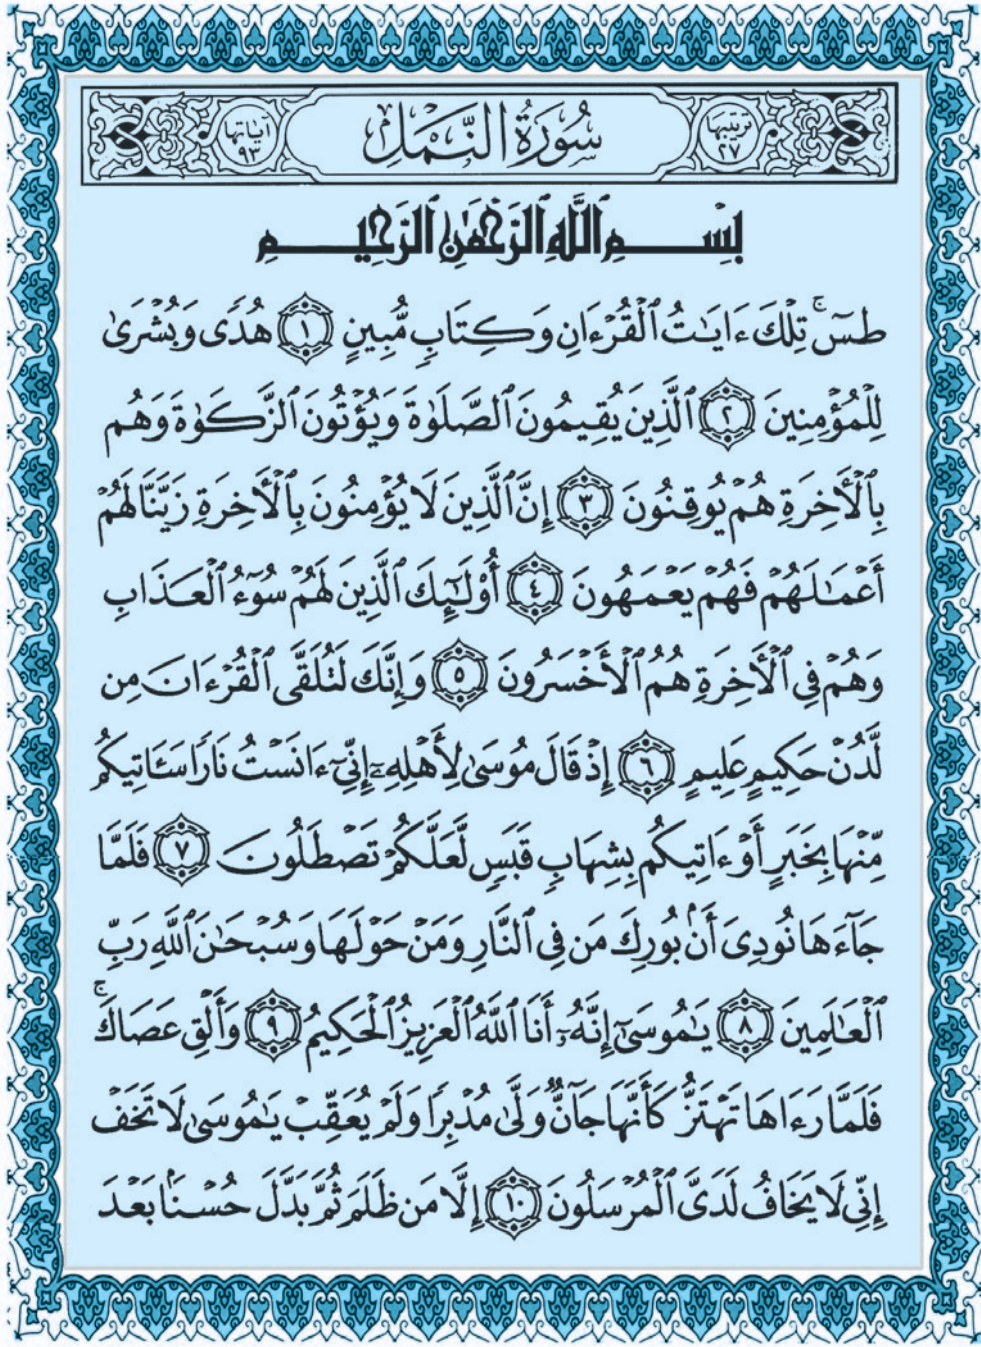 ترتيبها ٢٧ سُورَةُ النَّمْلِ آياتها ٩٣
بِسْمِ ٱللَّهِ ٱلرَّحْمَٰنِ ٱلرَّحِيمِ
طسٓ ۚ تِلْكَ ءَايَٰتُ ٱلْقُرْءَانِ وَكِتَابٍ مُّبِينٍ ١ هُدًى وَبُشْرَىٰ
لِلْمُؤْمِنِينَ ٢ ٱلَّذِينَ يُقِيمُونَ ٱلصَّلَوٰةَ وَيُؤْتُونَ ٱلزَّكَوٰةَ وَهُم
بِٱلْأَخِرَةِ هُمْ يُوقِنُونَ ٣ إِنَّ ٱلَّذِينَ لَا يُؤْمِنُونَ بِٱلْأَخِرَةِ زَيَّنَّا لَهُمْ
أَعْمَٰلَهُمْ فَهُمْ يَعْمَهُونَ ٤ أُو۟لَٰٓئِكَ ٱلَّذِينَ لَهُمْ سُوٓءُ ٱلْعَذَابِ
وَهُمْ فِى ٱلْأَخِرَةِ هُمُ ٱلْأَخْسَرُونَ ٥ وَإِنَّكَ لَتُلَقَّى ٱلْقُرْءَانَ مِن
لَّدُنْ حَكِيمٍ عَلِيمٍ ٦ إِذْ قَالَ مُوسَىٰ لِأَهْلِهِۦٓ إِنِّىٓ ءَانَسْتُ نَارًا سَـَٔاتِيكُم
مِّنْهَا بِخَبَرٍ أَوْ ءَاتِيكُم بِشِهَابٍ قَبَسٍ لَّعَلَّكُمْ تَصْطَلُونَ ٧ فَلَمَّا
جَآءَهَا نُودِىَ أَنۢ بُورِكَ مَن فِى ٱلنَّارِ وَمَنْ حَوْلَهَا وَسُبْحَٰنَ ٱللَّهِ رَبِّ
ٱلْعَٰلَمِينَ ٨ يَٰمُوسَىٰٓ إِنَّهُۥٓ أَنَا ٱللَّهُ ٱلْعَزِيزُ ٱلْحَكِيمُ ٩ وَأَلْقِ عَصَاكَ ۚ
فَلَمَّا رَءَاهَا تَهْتَزُّ كَأَنَّهَا جَآنٌّ وَلَّىٰ مُدْبِرًا وَلَمْ يُعَقِّبْ يَٰمُوسَىٰ لَا تَخَفْ
إِنِّى لَا يَخَافُ لَدَىَّ ٱلْمُرْسَلُونَ ١٠ إِلَّا مَن ظَلَمَ ثُمَّ بَدَّلَ حُسْنًۢا بَعْدَ